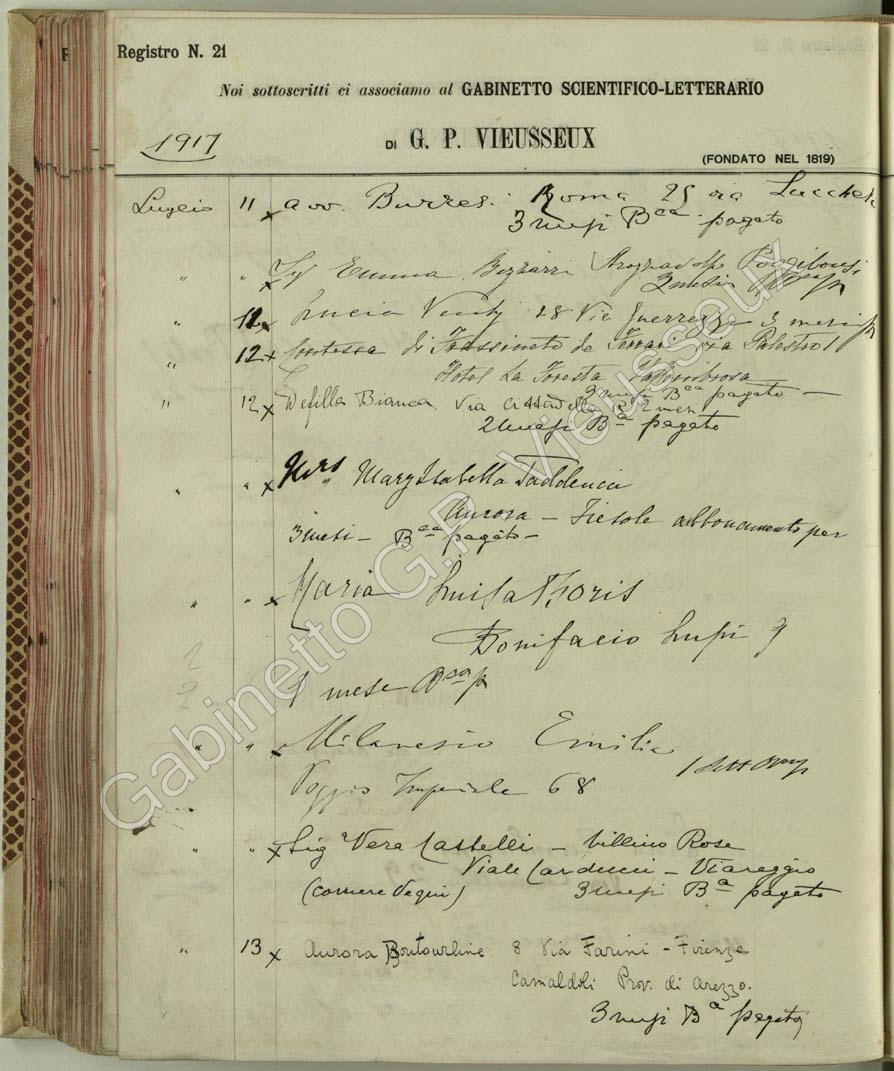 Registro N. 21
Noi sottoscritti ci associamo al GABINETTO SCIENTIFICO-LETTERARIO
1917
DI G. P. VIEUSSEUX
(FONDATO NEL 1819)
Luglio 11 x avv. Burresi Roma 25 via
3 mesi Bca pagato
" " x Emma Poggibonsi
3 mesi
" 12 x Lucia 28 Via Guerrazzi 3 mesi
" 12 x Contessa di Frassineto de Ferrari via Palestro 1
Hotel La Foresta Vallombrosa
3 mesi Bca pagato
" 12 x Defilla Bianca Via Cittadella
2 mesi Ba pagato
" " x Mrs Mary Isabella
Aurora - Fiesole abbonamento per
3 mesi - Bca pagato -
" " x Maria Luisa
Bonifacio Lupi 9
1 mese
" " x Milanesio Emilia
Poggio Imperiale 68
" " x Sig Vera Castelli - Villino Rose
Viale Carducci - Viareggio
3 mesi Ba pagato
" 13 x Aurora Boutourline 8 Via Farini - Firenze
Camaldoli Prov. di Arezzo.
3 mesi Ba pagato
Gabinetto G.P. Vieusseux